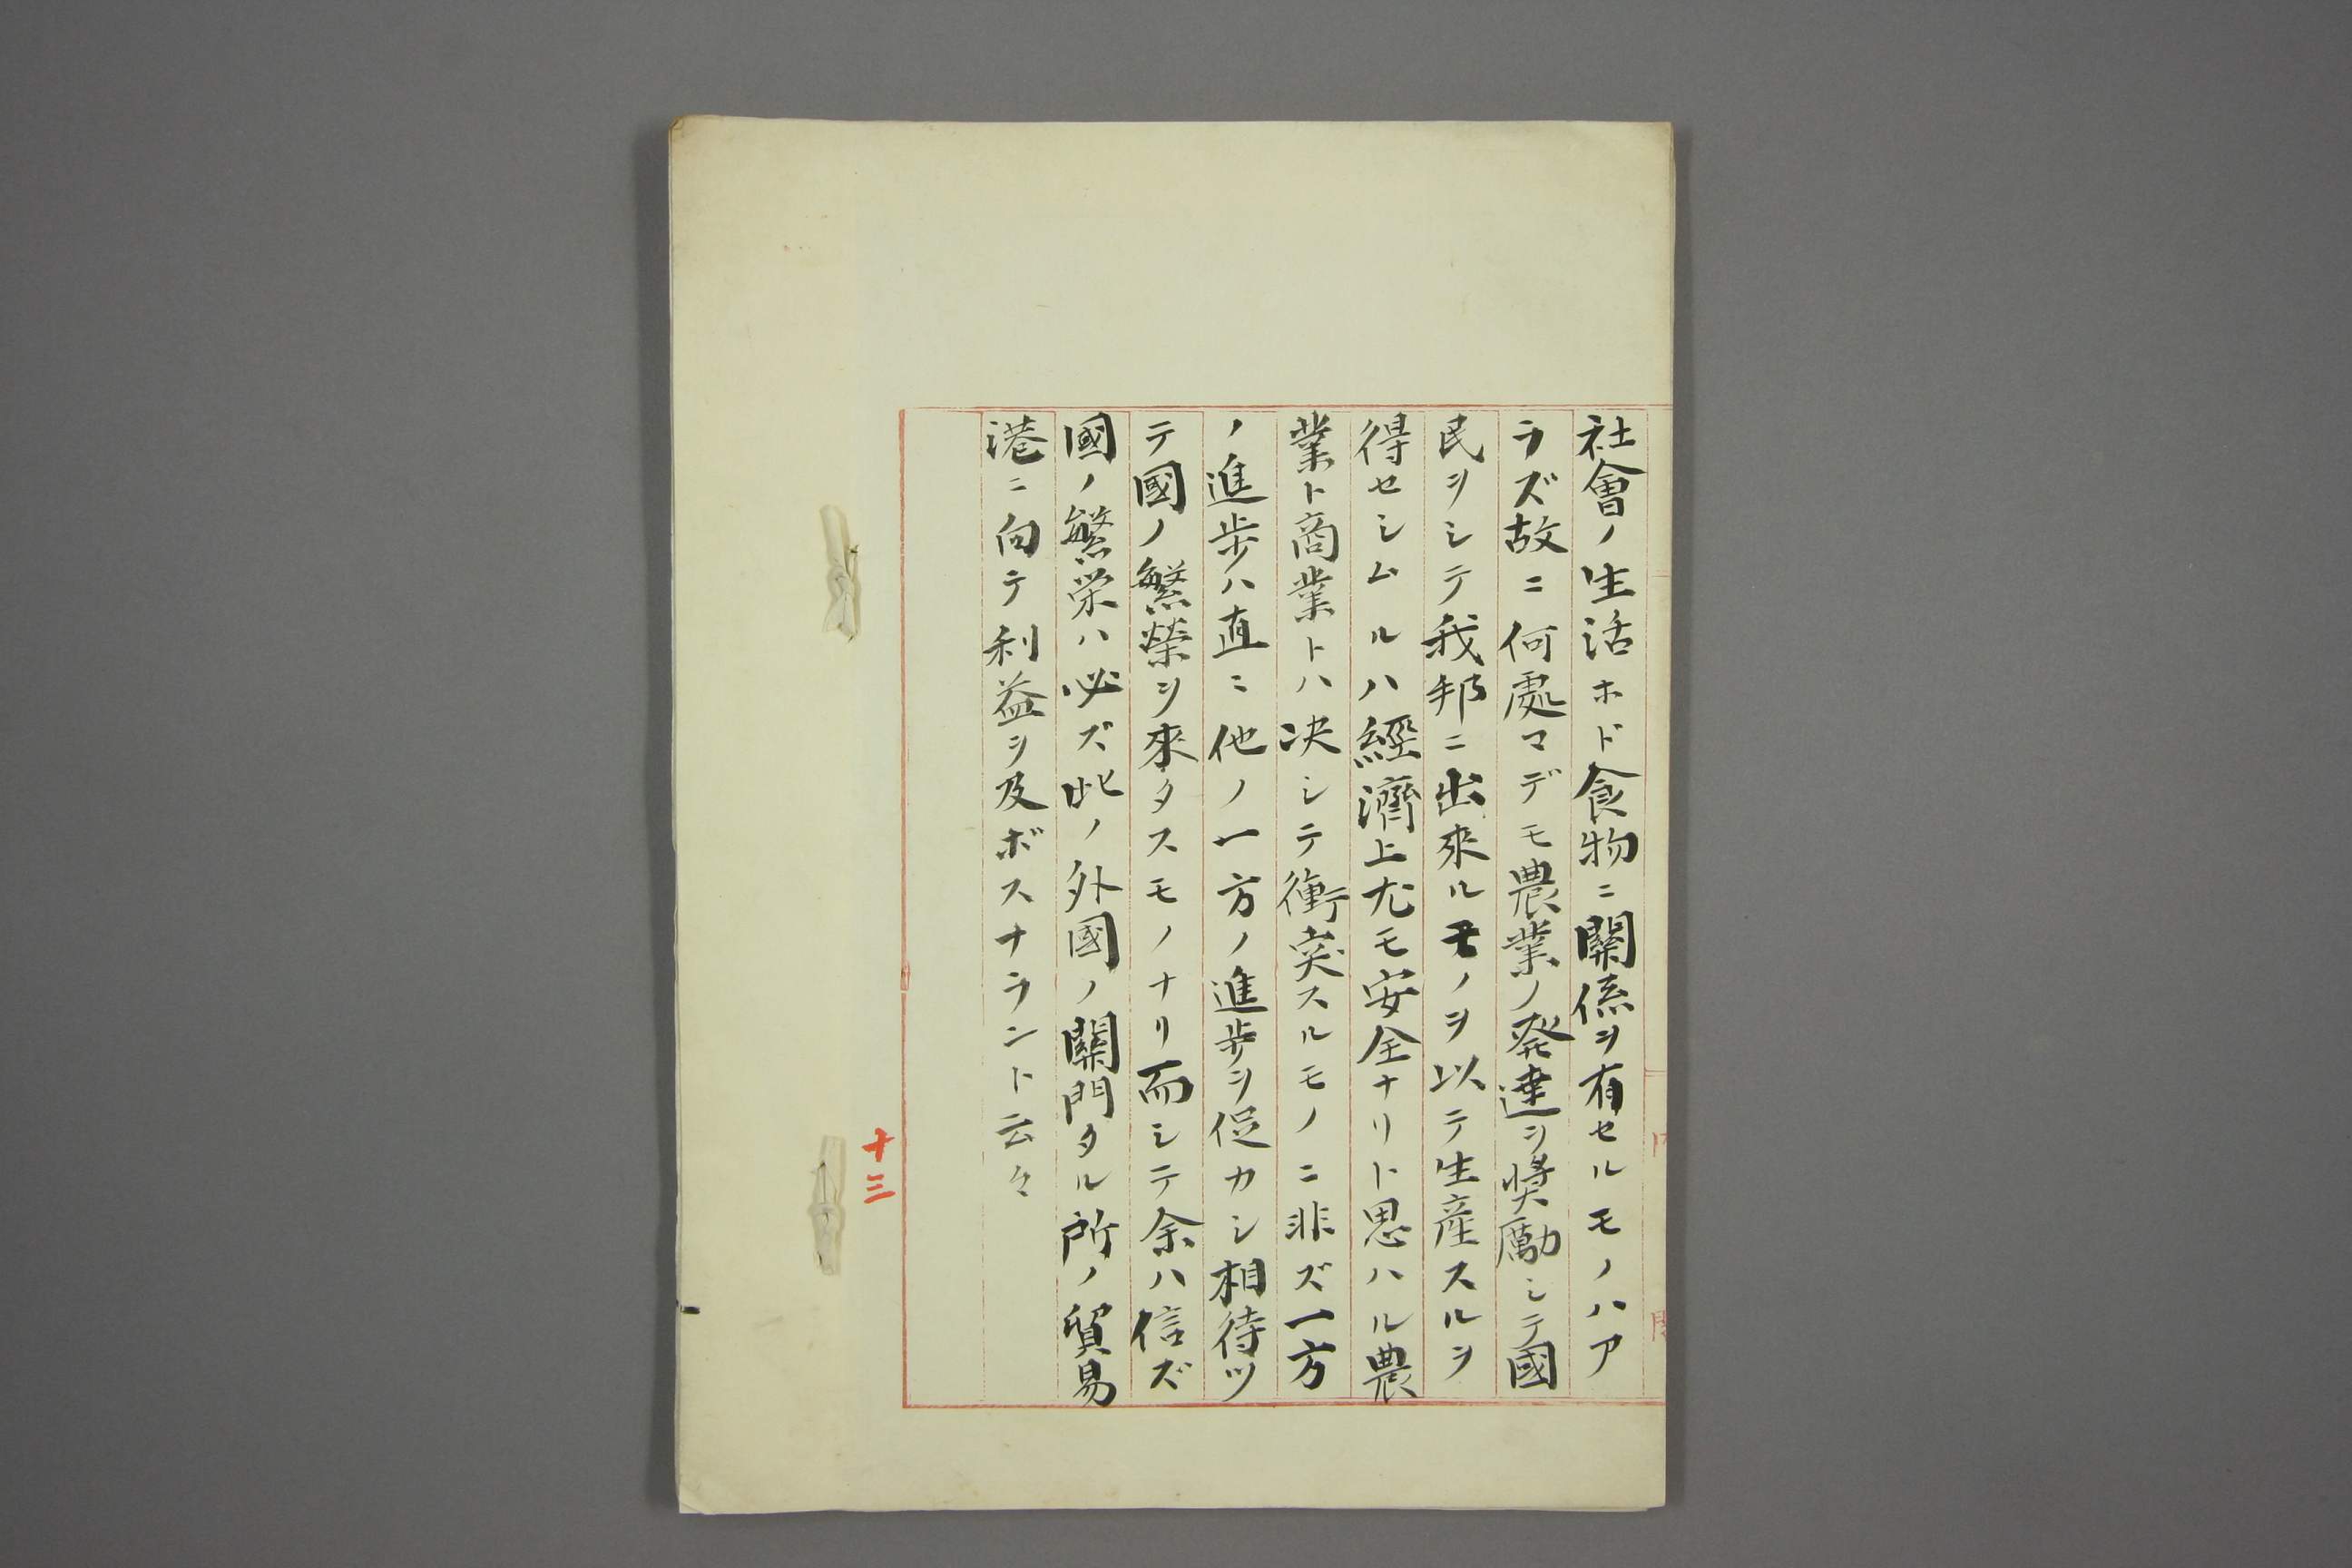 社會ノ生活ホド食物ニ關係ヲ有セルモノハア
ラズ故ニ何處マデモ農業ノ発達ヲ奨励シテ國
民ヲシテ我邦ニ出來ルモノヲ以テ生産スルヲ
得セシムルハ經濟上尤モ安全ナリト思ハル農
業ト商業トハ决シテ衝突スルモノニ非ズ一方
ノ進歩ハ直ニ他ノ一方ノ進歩ヲ促カシ相待ツ
テ國ノ繁榮ヲ來タスモノナリ而シテ余ハ信ズ
國ノ繁栄ハ必ズ此ノ外國ノ關門タル所ノ貿易
港ニ向テ利益ヲ及ボスナラント云々
十三